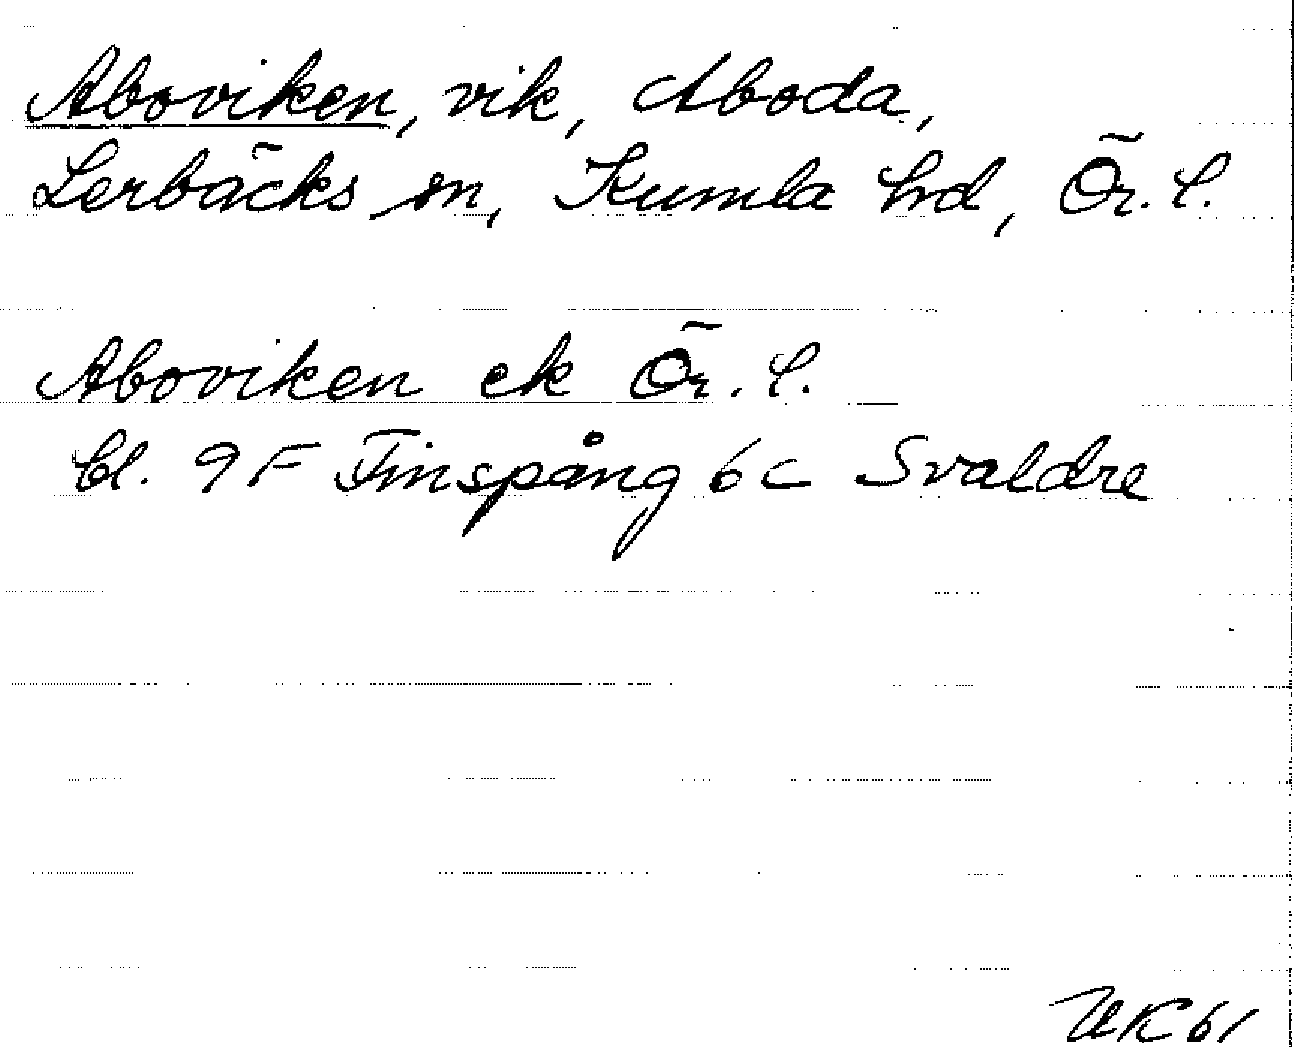 Aboviken, vik, Aboda,
Lerbäcks sn, Kumla hd, Ör. l.
Aboviken ek Ör. l.
bl. 9F Finspång 6c Svaldre
UK 61